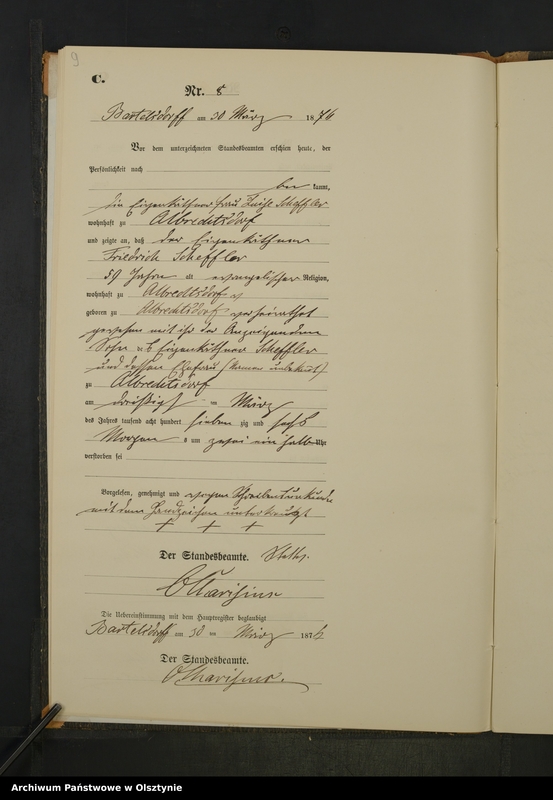 9
C.
Nr. 8
Bartelsdorff am 30 März 1876
Vor dem unterzeichneten Standesbeamten erschien heute, der
Persönlichkeit nach
kannt,
die Eigenkäthner Frau Scheffler
wohnhaft zu Albrechtsdorf
und zeigte an, daß der Eigenkäthner
Friedrich Scheffler
59 Jahre alt evangelischer Religion,
wohnhaft zu Albrechtsdorf
geboren zu Albrechtsdorf verheirathet
gewesen mit ihr der Anzeigenden
Sohn Eigenkäthner Scheffler
und dessen Ehefrau (Namen unbekannt)
zu Albrechtsdorf
am dreißigst en März
des Jahres tausend acht hundert sieben zig und sechs
Morgens um zwei ein halb Uhr
verstorben sei
Vorgelesen, genehmigt und wegen Schreibensunkunde
mit dem Handzeichen unterkreuzt
+ + +
Der Standesbeamte.
Die Uebereinstimmung mit dem Hauptregister beglaubigt
Bartelsdorff am 30 ten März 1876
Der Standesbeamte.
Archiwum Państwowe w Olsztynie